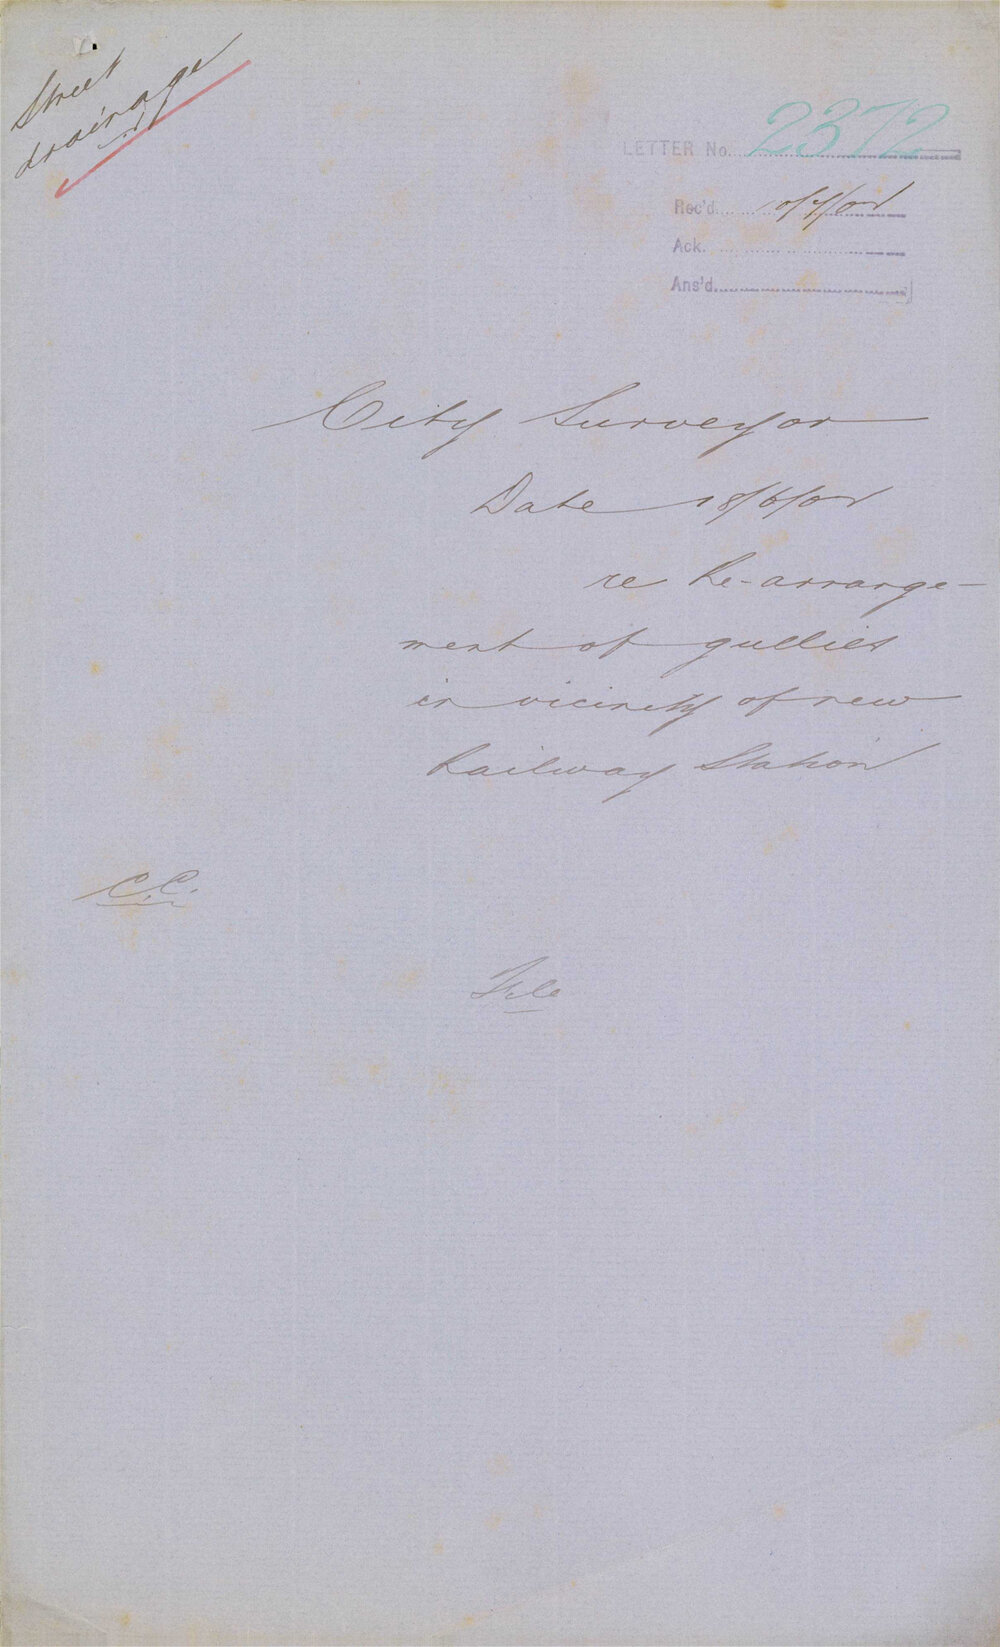 Street
drainage
LETTER No. 2372
Rec'd
Ack.
Ans'd.
City Surveyor
Date 18/6/01
re Re-arrange-
ment of gullies
in vicinity of new
Railway Station
C.C.
File